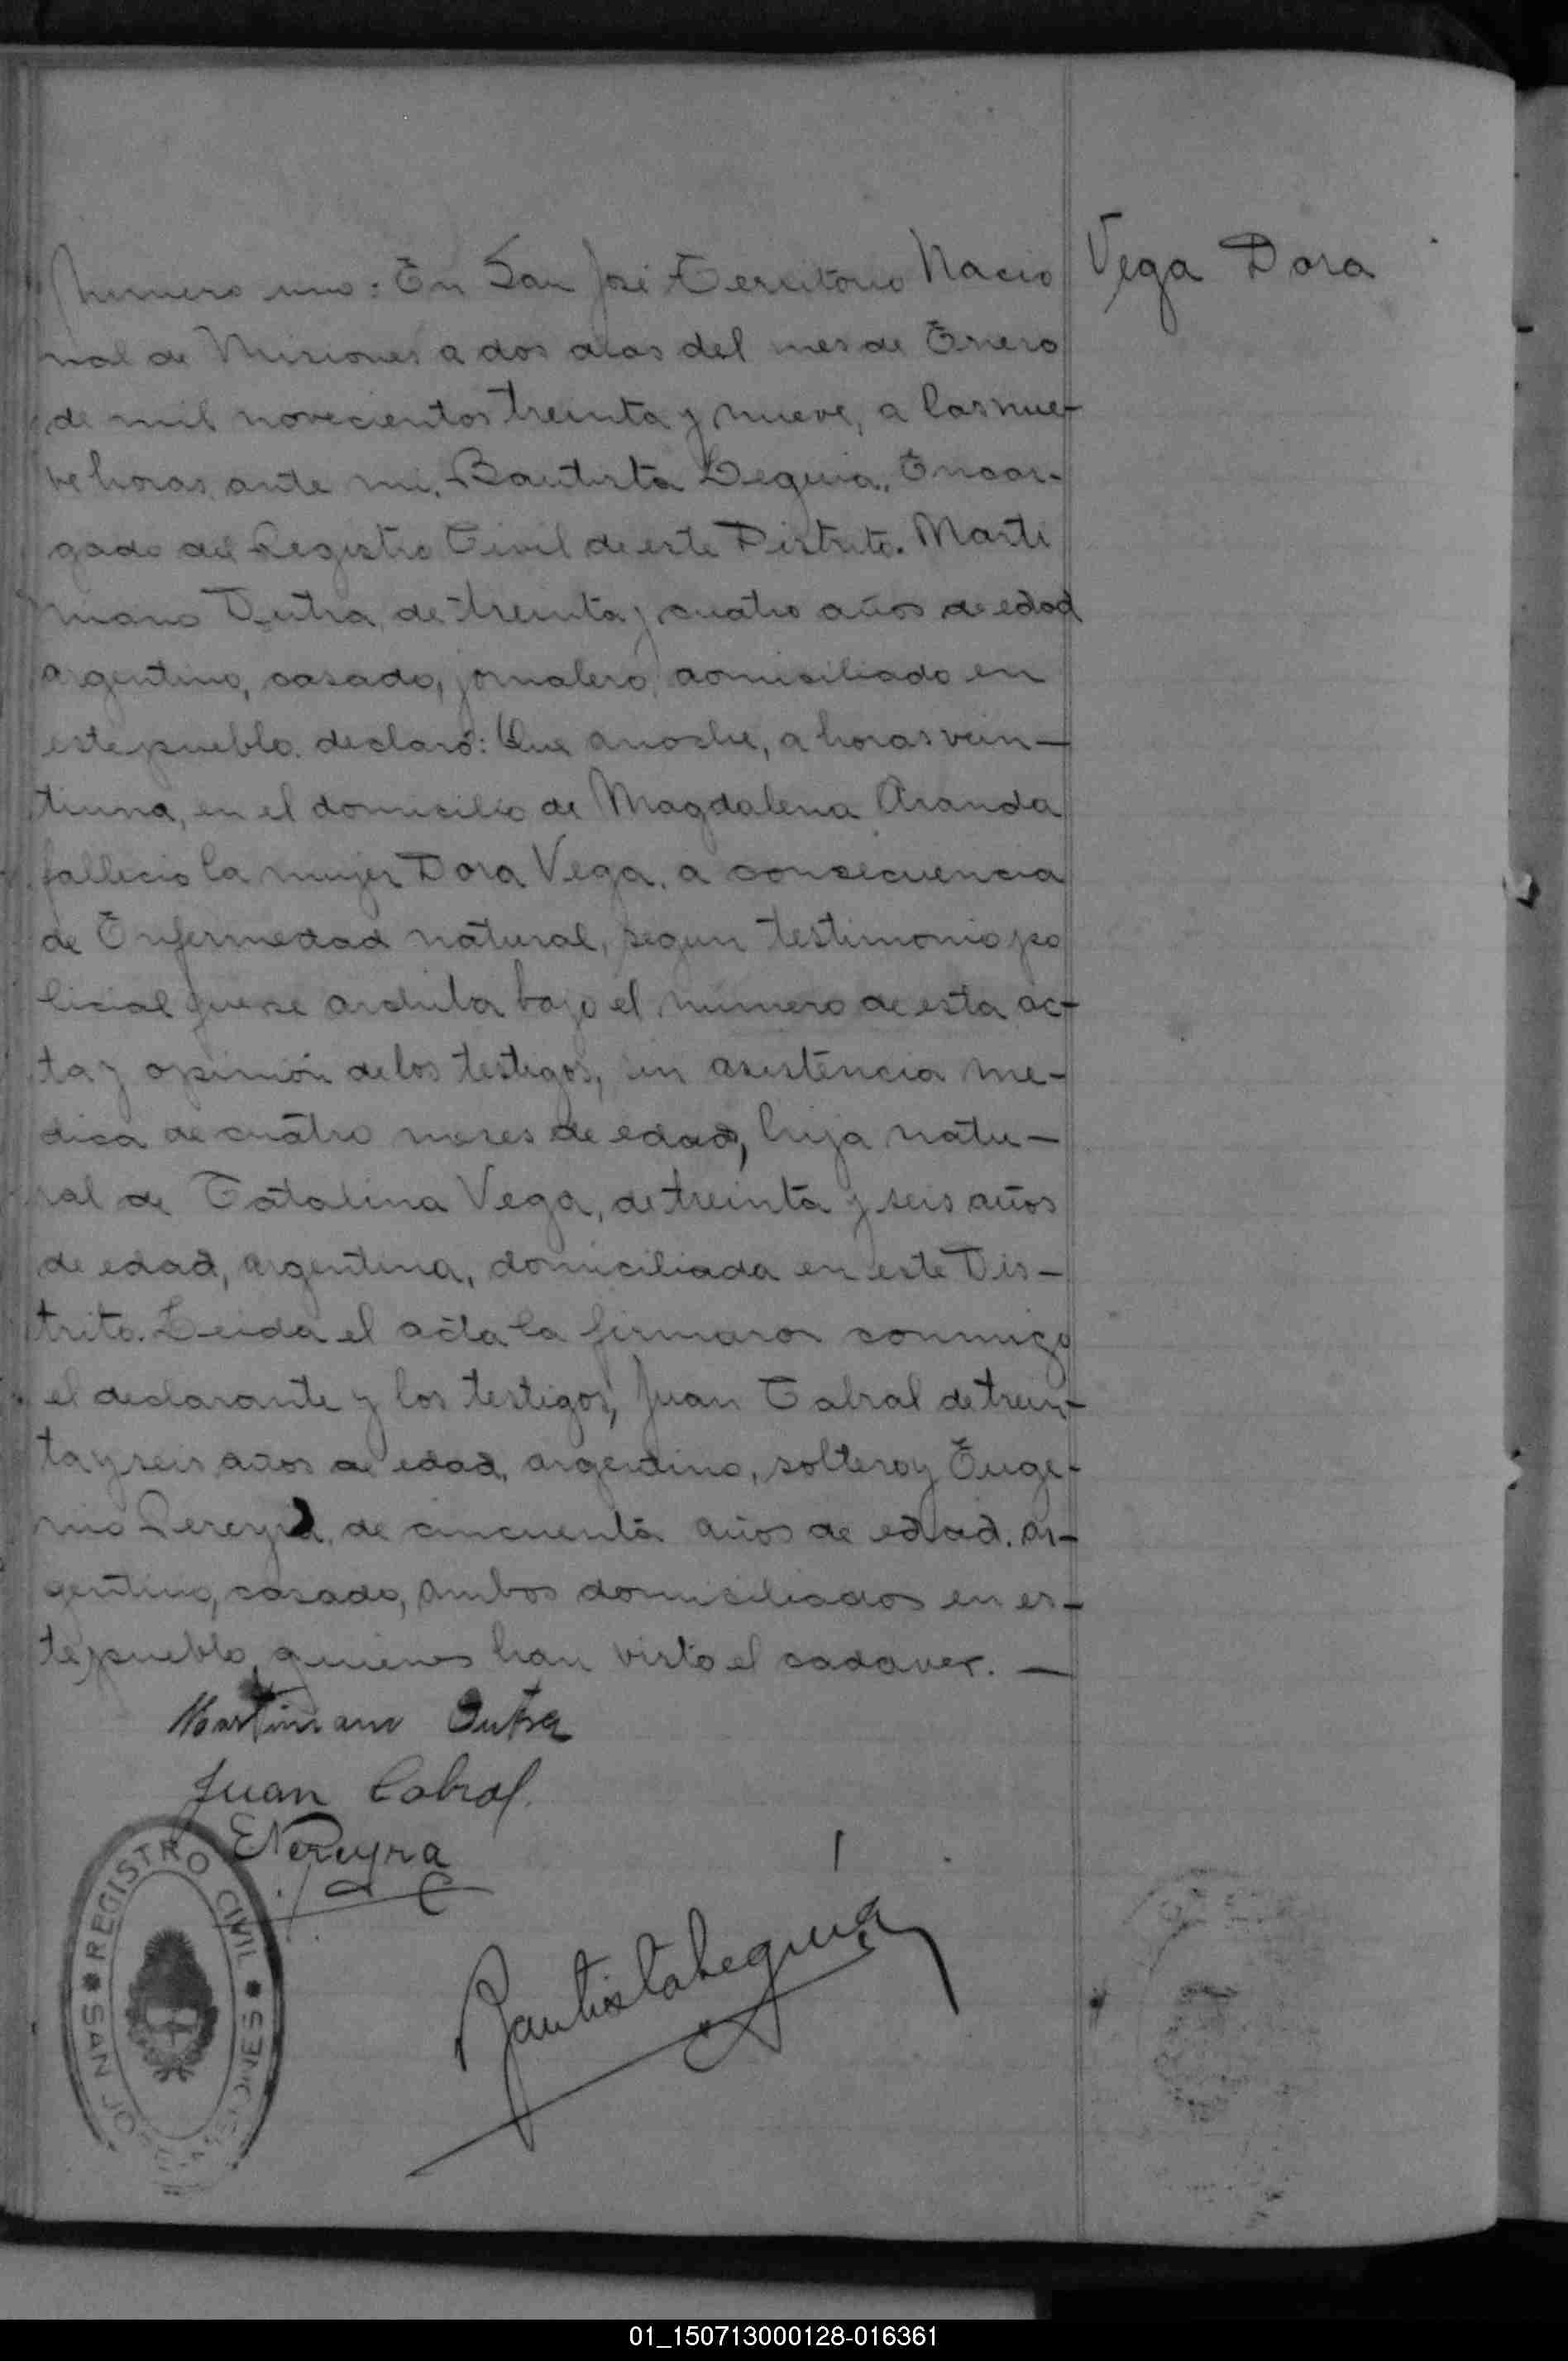 Vega Dora
Numero uno: En San José Territorio Nacio
nal de Misiones a dos dias del mes de Enero
de mil novecientos treinta y nueve, a las nue-
ve horas, ante mi, Bautista Leguia, Encar-
gado del Registro Civil de este Distrito. Marti
niano Dutra, de treinta y cuatro años de edad
argentino, casado, jornalero, domiciliado en
este pueblo. declaró: Que anoche, a horas vein-
tiuna, en el domicilio de Magdalena Aranda
fallecio la mujer Dora Vega, a consecuencia
de Enfermedad natural, segun testimonio po
licial que se archiva bajo el número de esta ac-
ta y opinión de los testigos, sin asistencia me-
dica de cuatro meses de edad, hija natu-
ral de Catalina Vega, de treinta y seis años
de edad, argentina, domiciliada en este Dis-
trito. Leida el acta la firmaron conmigo
el declarante y los testigos, Juan Cabral de trein-
ta y seis años de edad, argentino, soltero y Euge-
nio Pereyra, de cincuenta años de edad. ar-
gentino, casado, ambos domiciliados en es-
te pueblo, quienes han visto el cadaver. —
Martiniano Dutra
Juan Cabral.
E Pereyra
Bautista Leguía
REGISTRO CIVIL
SAN JOSE MISIONES
01_150713000128-016361